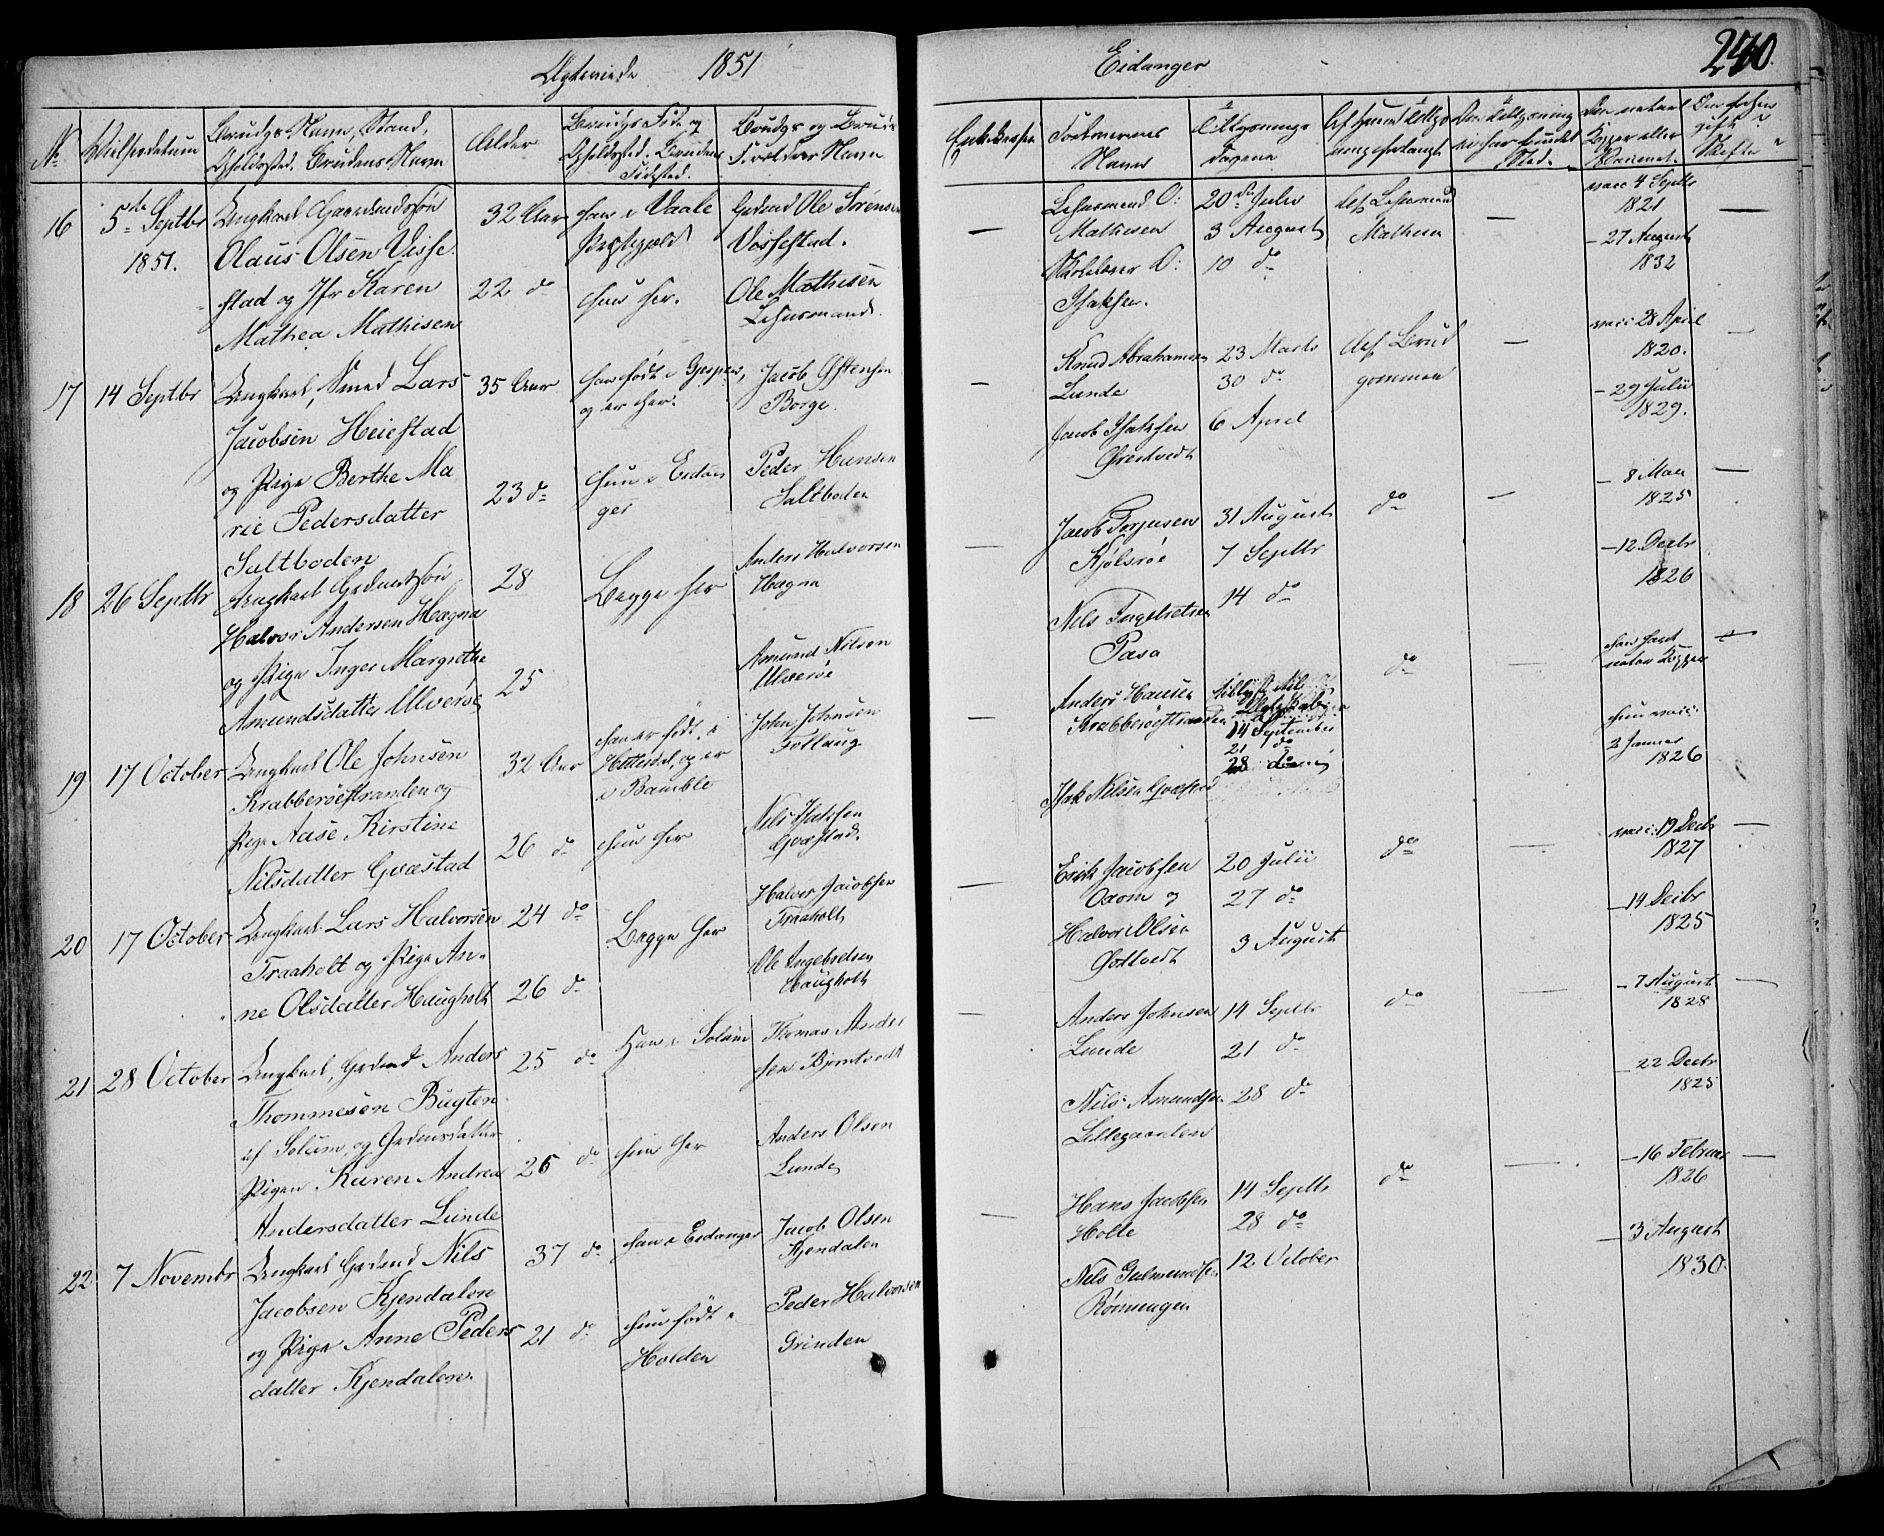 Ægteviede 1851
Eidanger
240.
No
Vielsesdatum
Brudgs Navn, Stand,
Opholdssted. Brudens Navn
Alder
Brudgs Føde og
Opholdssted. Brudens
Fødested.
Brudgs og Brudens
Forældres Navn
Enkekassen
Forlovernes
Navne
Tillysnings
Dagene
16
5te Septbr
1851.
Ungkarl Gaardmandssøn
Olaus Olsen Visse
stad og Jfr Karen
Mathea Mathisen
32 Aar
22 do
han i Vaale
Præstegjeld
hun her.
Gdmd Ole Sørensen
Vissestad.
Ole Mathisen
Lehnsmand.
—
Lehnsmand O:
Mathisen
Skolelærer O:
Isaksen.
20de Julii
3 August
10 do
af Lehnsmand
Mathisen
—
vacc 4 Septbr
1821
– 27 August
1832
—
17
14 Septbr
Ungkarl, Smed Lars
Jacobsen Heiestad
og Pige Berthe Ma
rie Pedersdatter
Saltboden
35 Aar
23 do
han født i Gjerpen,
og er her.
hun i Eidan
ger
Jacob Estensen
Borge.
Peder Hansen
Saltboden
—
Knud Abrahamsen
Lunde
Jacob Isaksen
23 Marts
30 do
6 April
af Brud
gommen
—
vacc: 28 April
1820.
– 29 Julii
1829.
—
18
26 Septbr
Ungkarl Gdmandssøn
Halvor Andersen Hagna
og Pige Inger Margrethe
Amundsdatter Ulverøe
28
25
Begge her
Anders Halvorsen
Hagna
Amund Nilsen
Ulverøe
—
Jacob Torjusen
Kjølsrøe
Nils Ingebretsen
Pasa
31 August
7 Septbr
14 do
do
—
– 8 Mai
1825
– 12 Decbr
1826
—
19
17 October
Ungkarl Ole Johnsen
Krabberøestranden og
Pige Aase Kirstine
Nilsdatter Gvæstad
32 Aar
26 do
han er født i
Hitterdal, og er
i Bamble
hun her
John Johnsen
Follaug
Nils Isaksen
Gvæstad.
—
Anders Hansen
Krabberøestranden
Isak Nilsen Gvæstad
14 September
21 do
28 do
do
—
han havt
natur Kopper
hun vacc:
2 Januar
1826
—
20
17 October
Ungkarl Lars Halvorsen
Traaholt og Pige An-
ne Olsdatter Haugholt
24 do
26 do
Begge her
Halvor Jacobsen
Traaholt
Ole Ingebretsen
Haugholt
—
Erik Jacobsen
Oxom og
Halvor Olsen
20 Julii
27 do
3 August
do
—
vacc: 19 Decbr
1827
– 14 Decbr
1825
—
21
28 October
Ungkarl, Gdmd Anders
Thommesen Bugten
af Solum, og Gdmdsdatter
Pigen Karen Andrea
Andersdatter Lunde
25 do
26 do
Han i Solum
hun her
Thomas Ander
sen Bjørntvedt
Anders Olsen
Lunde
—
Anders Johnsen
Lunde
Nils Amundsen
Lillegaarden
14 Septbr
21 do
28 do
do
—
– 7 August
1828
– 22 Decbr
1825
—
22
7 Novembr
Ungkarl Gdmd Nils
Jacobsen Kjendalen
og Pige Anne Peders
datter Kjendalen.
37 do
21 do
han i Eidanger
hun født i
Holden
Jacob Olsen
Kjendalen
Peder Halvorsen
Grinden
—
Hans Jacobsen
Holte
Nils Gulmundsen
Rønningen
14 Septbr
28 do
12 October
do
—
– 16 Februar
1826
– 3 August
1830.
—